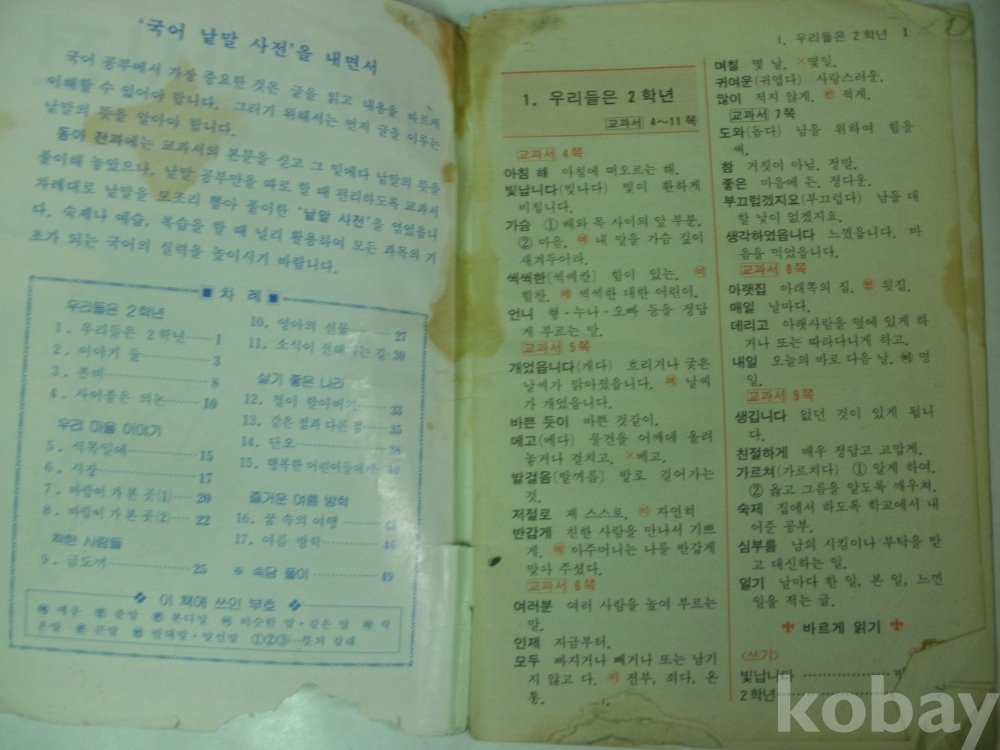 ‘국어 낱말 사전’을 내면서
국어 공부에서 가장 중요한 것은 글을 읽고 내용을 바르게
이해할 수 있어야 합니다. 그러기 위해서는 먼저 글을 이루는
낱말의 뜻을 알아야 합니다.
동아 전과에는 교과서의 본문을 싣고 그 밑에다 낱말의 뜻을
풀이해 놓았으나, 낱말 공부만을 따로 할 때 편리하도록 교과서
차례대로 낱말을 모조리 뽑아 풀이한 ‘낱말 사전’을 엮었습니
다. 숙제나 예습, 복습을 할 때 널리 활용하여 모든 과목의 기
초가 되는 국어의 실력을 높이시기 바랍니다.
■ 차 례 ■
우리들은 2학년
1. 우리들은 2학년……1
2. 이야기 둘……3
3. 봄비……8
4. 사이좋은 의논……10
우리 마을 이야기
5. 식목일에……15
6. 시장……17
7. 바람이 가 본 곳(1)……20
8. 바람이 가 본 곳(2)……22
착한 사람들
9. 금도끼……25
10. 엄마의 선물……27
11. 소식이 전해지는 길…30
살기 좋은 나라
12. 점이 할아버지……33
13. 같은 점과 다른 점……35
14. 단오……38
15. 행복한 어린이들에게…40
즐거운 여름 방학
16. 꿈 속의 여행……43
17. 여름 방학……46
※ 속담 풀이……49
◆ 이 책에 쓰인 부호 ◆
예문 준말 본디말 비슷한 말·같은 말 작
은말 큰말 반대말·맞선말 ①②③…뜻의 갈래
1. 우리들은 2학년
교과서 4~11쪽
교과서 4쪽
아침 해 아침에 떠오르는 해.
빛납니다(빛나다) 빛이 환하게
비칩니다.
가슴 ① 배와 목 사이의 앞 부분.
② 마음. 예 내 말을 가슴 깊이
새겨두어라.
씩씩한(씩씩칸) 힘이 있는. 비
힘찬. 예 씩씩한 대한 어린이.
언니 형·누나·오빠 등을 정답
게 부르는 말.
교과서 5쪽
개었읍니다(개다) 흐리거나 궂은
날씨가 맑아졌읍니다. 예 날씨
가 개었읍니다.
바쁜 듯이 바쁜 것같이.
메고(메다) 물건을 어깨에 올려
놓거나 걸치고. ×메고.
발걸음(발꺼름) 발로 걸어가는
것.
저절로 제 스스로. 비 자연히
반갑게 친한 사람을 만나서 기쁘
게. 예 아주머니는 나를 반갑게
맞아 주셨다.
교과서 6쪽
여러분 여러 사람을 높여 부르는
말.
인제 지금부터.
모두 빠지거나 빼거나 또는 남기
지 않고 다. 비 전부, 죄다, 온
통.
1. 우리들은 2학년 1
며칠 몇 날. ×몇일.
귀여운(귀엽다) 사랑스러운.
많이 적지 않게. 반 적게.
교과서 7쪽
도와(돕다) 남을 위하여 힘을
써.
참 거짓이 아님. 정말.
좋은 마음에 든. 정다운.
부끄럽겠지요(부끄럽다) 남을 대
할 낯이 없겠지요.
생각하였읍니다 느꼈읍니다. 마
음을 먹었읍니다.
교과서 8쪽
아랫집 아래쪽의 집. 반 윗집.
매일 날마다.
데리고 아랫사람을 옆에 있게 하
거나 또는 따라다니게 하고.
내일 오늘의 바로 다음 날. 비 명
일.
교과서 9쪽
생깁니다 없던 것이 있게 됩니
다.
친절하게 매우 정답고 고맙게.
가르쳐(가르치다) ① 알게 하여.
② 옳고 그름을 알도록 깨우쳐.
숙제 집에서 하도록 학교에서 내
어준 공부.
심부름 남의 시킴이나 부탁을 받
고 대신하는 일.
일기 날마다 한 일, 본 일, 느낀
일을 적는 글.
바르게 읽기
〈쓰기〉
빛납니다
2학년
kobay